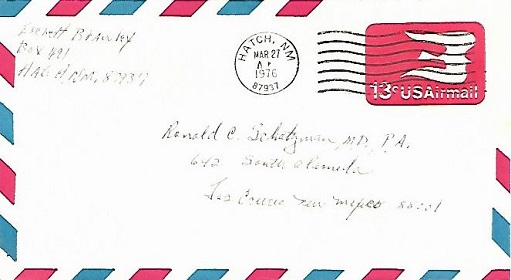 Everett Brawley
Box 491
Hatch N.M. 87937
HATCH, NM
MAR 27
1976
87937
13c USAirmail
Ronald C. Schotzman, MD., P.A.
642 South Alameda
Las Cruces New Mexico 88001